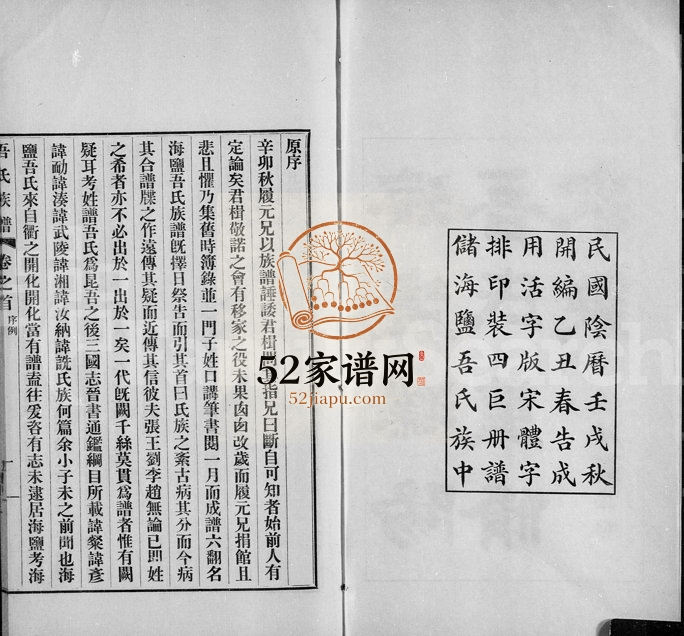 民國陰曆壬戌秋
開編乙丑春告成
用活字版宋體字
排印裝四巨册譜
儲海鹽吾氏族中
原序
辛卯秋履元兄以族譜諈諉君楫指兄曰斷自可知者始前人有
定論矣君楫敬諾之會有移家之役未果卥卥改歲而履元兄捐館且
悲且懼乃集舊時簿錄並一門子姓口講筆書閱一月而成譜六翻名
海鹽吾氏族譜旣擇日祭告而引其首曰氏族之紊古病其分而今病
其合譜牒之作遠傳其疑而近傳其信彼夫張王劉李趙無論已卽姓
之希者亦不必出於一出於一矣一代旣闕千絲莫貫爲譜者惟有闕
疑耳考姓譜吾氏爲昆吾之後三國志晉書通鑑綱目所載諱粲諱彥
諱勔諱湊諱武陵諱湘諱汝納諱詵氏族何篇余小子未之前聞也海
鹽吾氏來自衢之開化開化當有譜蓋往爰咨有志未逮居海鹽考海
吾氏族譜 卷之首 序例
一
52家谱网
52jiapu.com